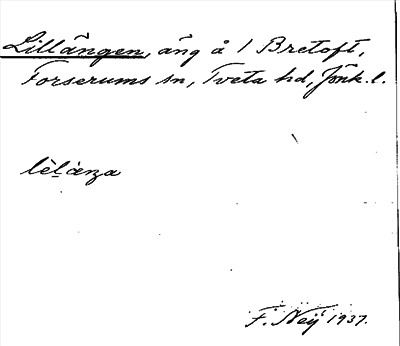 Lillängen, äng å 1 Bretoft,
Forserums sn, Tveta hd, Jönk. l.
lèl̤àŋa
F. Neij 1937.